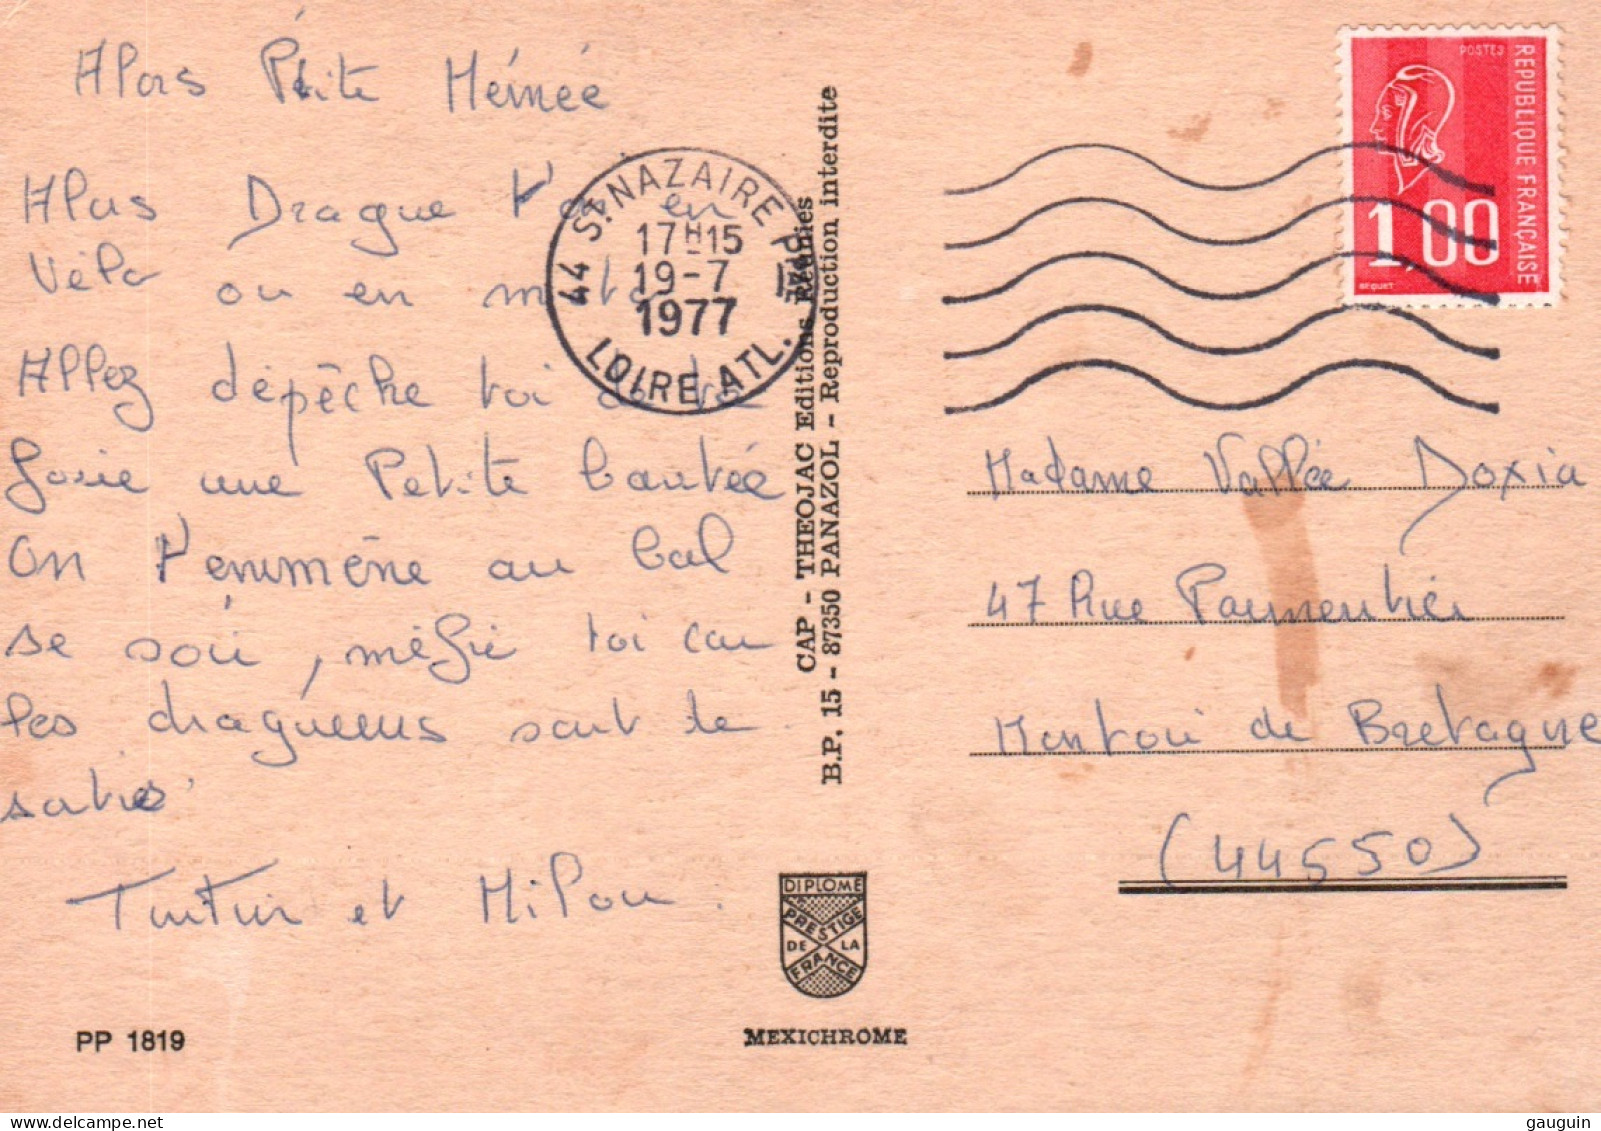 Alors Petite Mémée
Alors Drague t'on en
Vélo ou en moto
Allez dépêche toi de te
faire une Petite beautée
on t'emmène au bal
se soir, méfie toi car
les dragueurs sont de
sorties
Tintin et Milou.
PP 1819
CAP - THEOJAC Editions Réunies
B.P. 15 - 87350 PANAZOL - Reproduction interdite
44 ST. NAZAIRE PPAL
17H15
19-7
1977
LOIRE ATL.
DIPLOME
PRESTIGE
DE LA
FRANCE
MEXICHROME
POSTES
REPUBLIQUE FRANÇAISE
1,00
BEQUET
Madame Vallée Doxia
47 Rue Parmentier
Montoir de Bretagne
(44550)
gauguin © delcampe.net